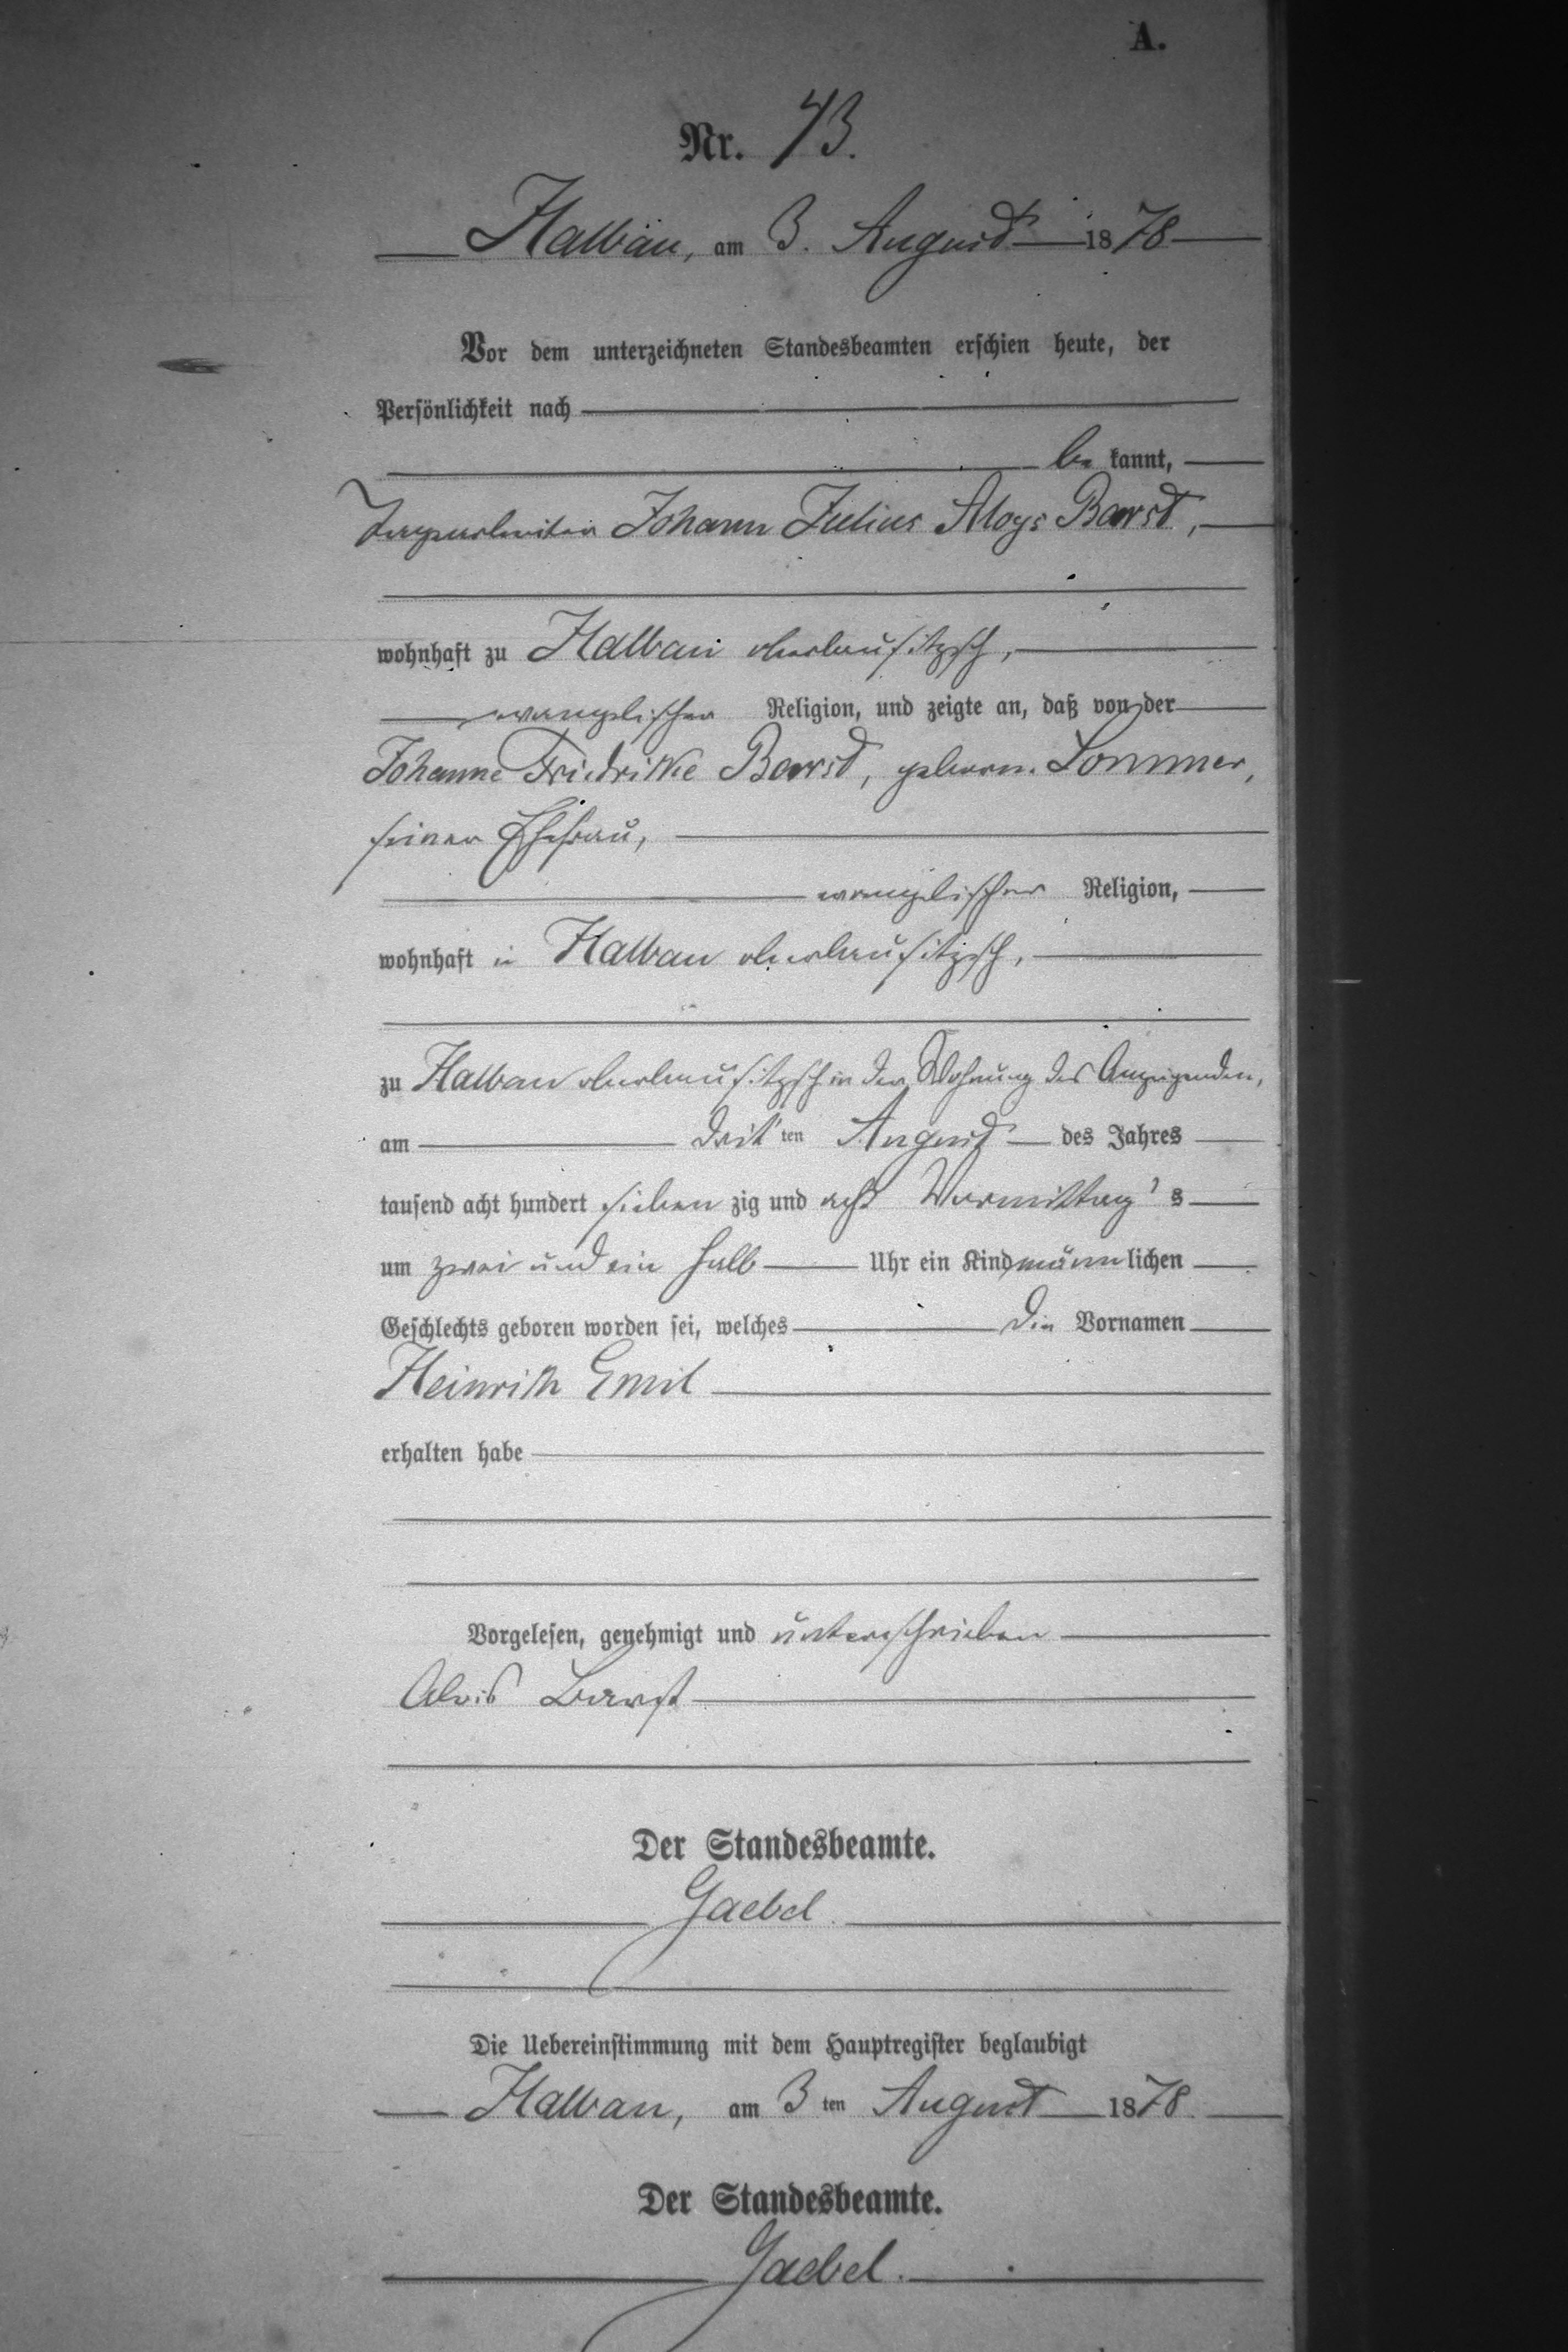 A.
Nr. 73.
Halbau, am 3. August 1878
Vor dem unterzeichneten Standesbeamten erschien heute, der
Persönlichkeit nach
be kannt,
Johann Julius Aloys Barst,
wohnhaft zu Halbau oberlausitzisch,
evangelischer Religion, und zeigte an, daß von der
Johanne Friedricke Barst, geboren. Sommer,
seiner Ehefrau,
evangelischer Religion,
wohnhaft in Halbau oberlausitzisch,
zu Halbau oberlausitzisch in der Wohnung des Anzeigenden,
am dritt ten August des Jahres
tausend acht hundert sieben zig und acht Vormittag s
um zwei und ein halb Uhr ein Kind männ lichen
Geschlechts geboren worden sei, welches die Vornamen
Heinrich Emil
erhalten habe
Vorgelesen, genehmigt und unterschrieben
Alois Barst
Der Standesbeamte.
Gaebel
Die Uebereinstimmung mit dem Hauptregister beglaubigt
Halbau, am 3 ten August 1878.
Der Standesbeamte.
Gaebel.